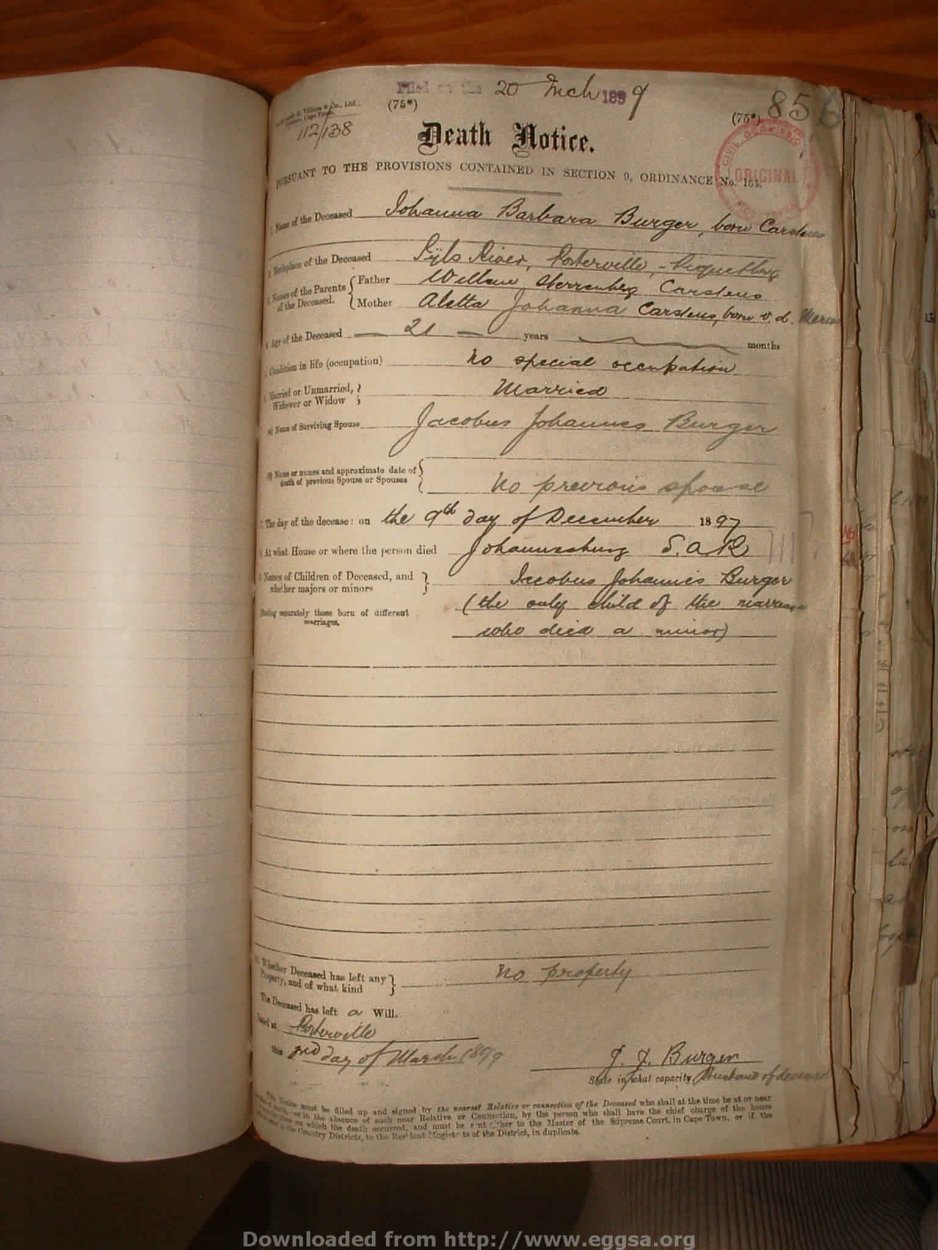 Filed on the 20 Mch 1899
(75*)
(75*) 856
112/138
Death Notice.
PURSUANT TO THE PROVISIONS CONTAINED IN SECTION 9, ORDINANCE No. 104.
CIVIL COMMISSIO
ORIGINAL
1. Name of the Deceased Johanna Barbara Burger, born Carstens
2. Birthplace of the Deceased River, Porterville, - Piquetberg
3. Names of the Parents of the Deceased. { Father Willem Sterrenberg Carstens
Mother Aletta Johanna Carstens, born v. d. Merwe
4. Age of the Deceased — 21 — years months
5. Condition in life (occupation) no special occupation
6. Married or Unmarried, Widower or Widow } Married
(a) Name of Surviving Spouse Jacobus Johannes Burger
(b) Name or names and approximate date of death of previous Spouse or Spouses { no previous spouse
7. The day of the decease: on the 9th day of December 1897
8. At what House or where the person died Johannesburg S.A.R
9. Names of Children of Deceased, and whether majors or minors } Jacobus Johannes Burger
Stating separately those born of different marriages. (the only child of the marriage
who died a minor)
10. Whether Deceased has left any Property, and of what kind } no property
The Deceased has left a Will.
Dated at Porterville
this 3rd day of March 1899
J. J. Burger
State in what capacity Husband of deceased
Notice must be filled up and signed by the nearest Relative or connection of the Deceased who shall at the time be at or near
in the absence of such near Relative or Connection, by the person who shall have the chief charge of the house
in or on which the death occurred, and must be sent either to the Master of the Supreme Court, in Cape Town, or if the
in the Country Districts, to the Resident Magistrate of the District, in duplicate.
Downloaded from http://www.eggsa.org